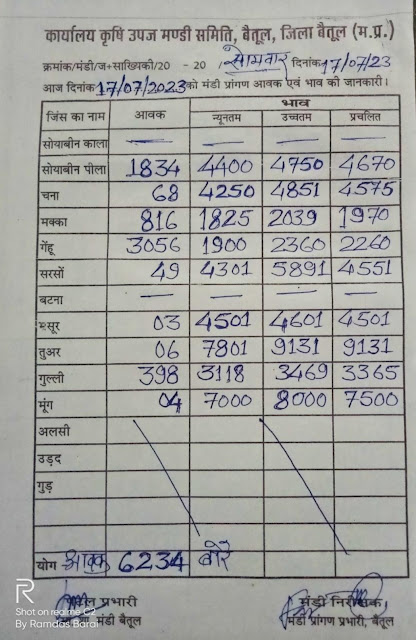 कार्यालय कृषि उपज मण्डी समिति, बैतूल, जिला बैतूल (म.प्र.)
क्रमांक/मंडी/ज+साख्यिकी/20 - 20 / सोमवार दिनांक 17/07/23
आज दिनांक 17/07/2023 को मंडी प्रांगण आवक एवं भाव की जानकारी।
जिंस का नाम आवक भाव
न्यूनतम उच्चतम प्रचलित
सोयाबीन काला — — — —
सोयाबीन पीला 1834 4400 4750 4670
चना 68 4250 4851 4575
मक्का 816 1825 2039 1970
गेंहू 3056 1900 2360 2260
सरसों 49 4301 5891 4551
बटना — — — —
मसूर 03 4501 4601 4501
तुअर 06 7801 9131 9131
गुल्ली 398 3118 3469 3365
मूंग 04 7000 8000 7500
अलसी
उड़द
गुड़
योग आवक 6234 बोरे
प्रभारी मंडी निरीक्षक
मंडी बैतूल मंडी प्रांगण प्रभारी, बैतूल
R
Shot on realme C2
By Ramdas Barai